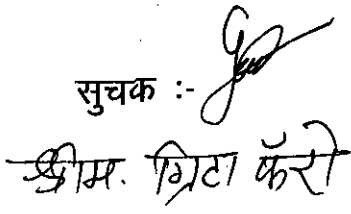 सुचक :-
श्रीम. ग्रिटा फॅरो